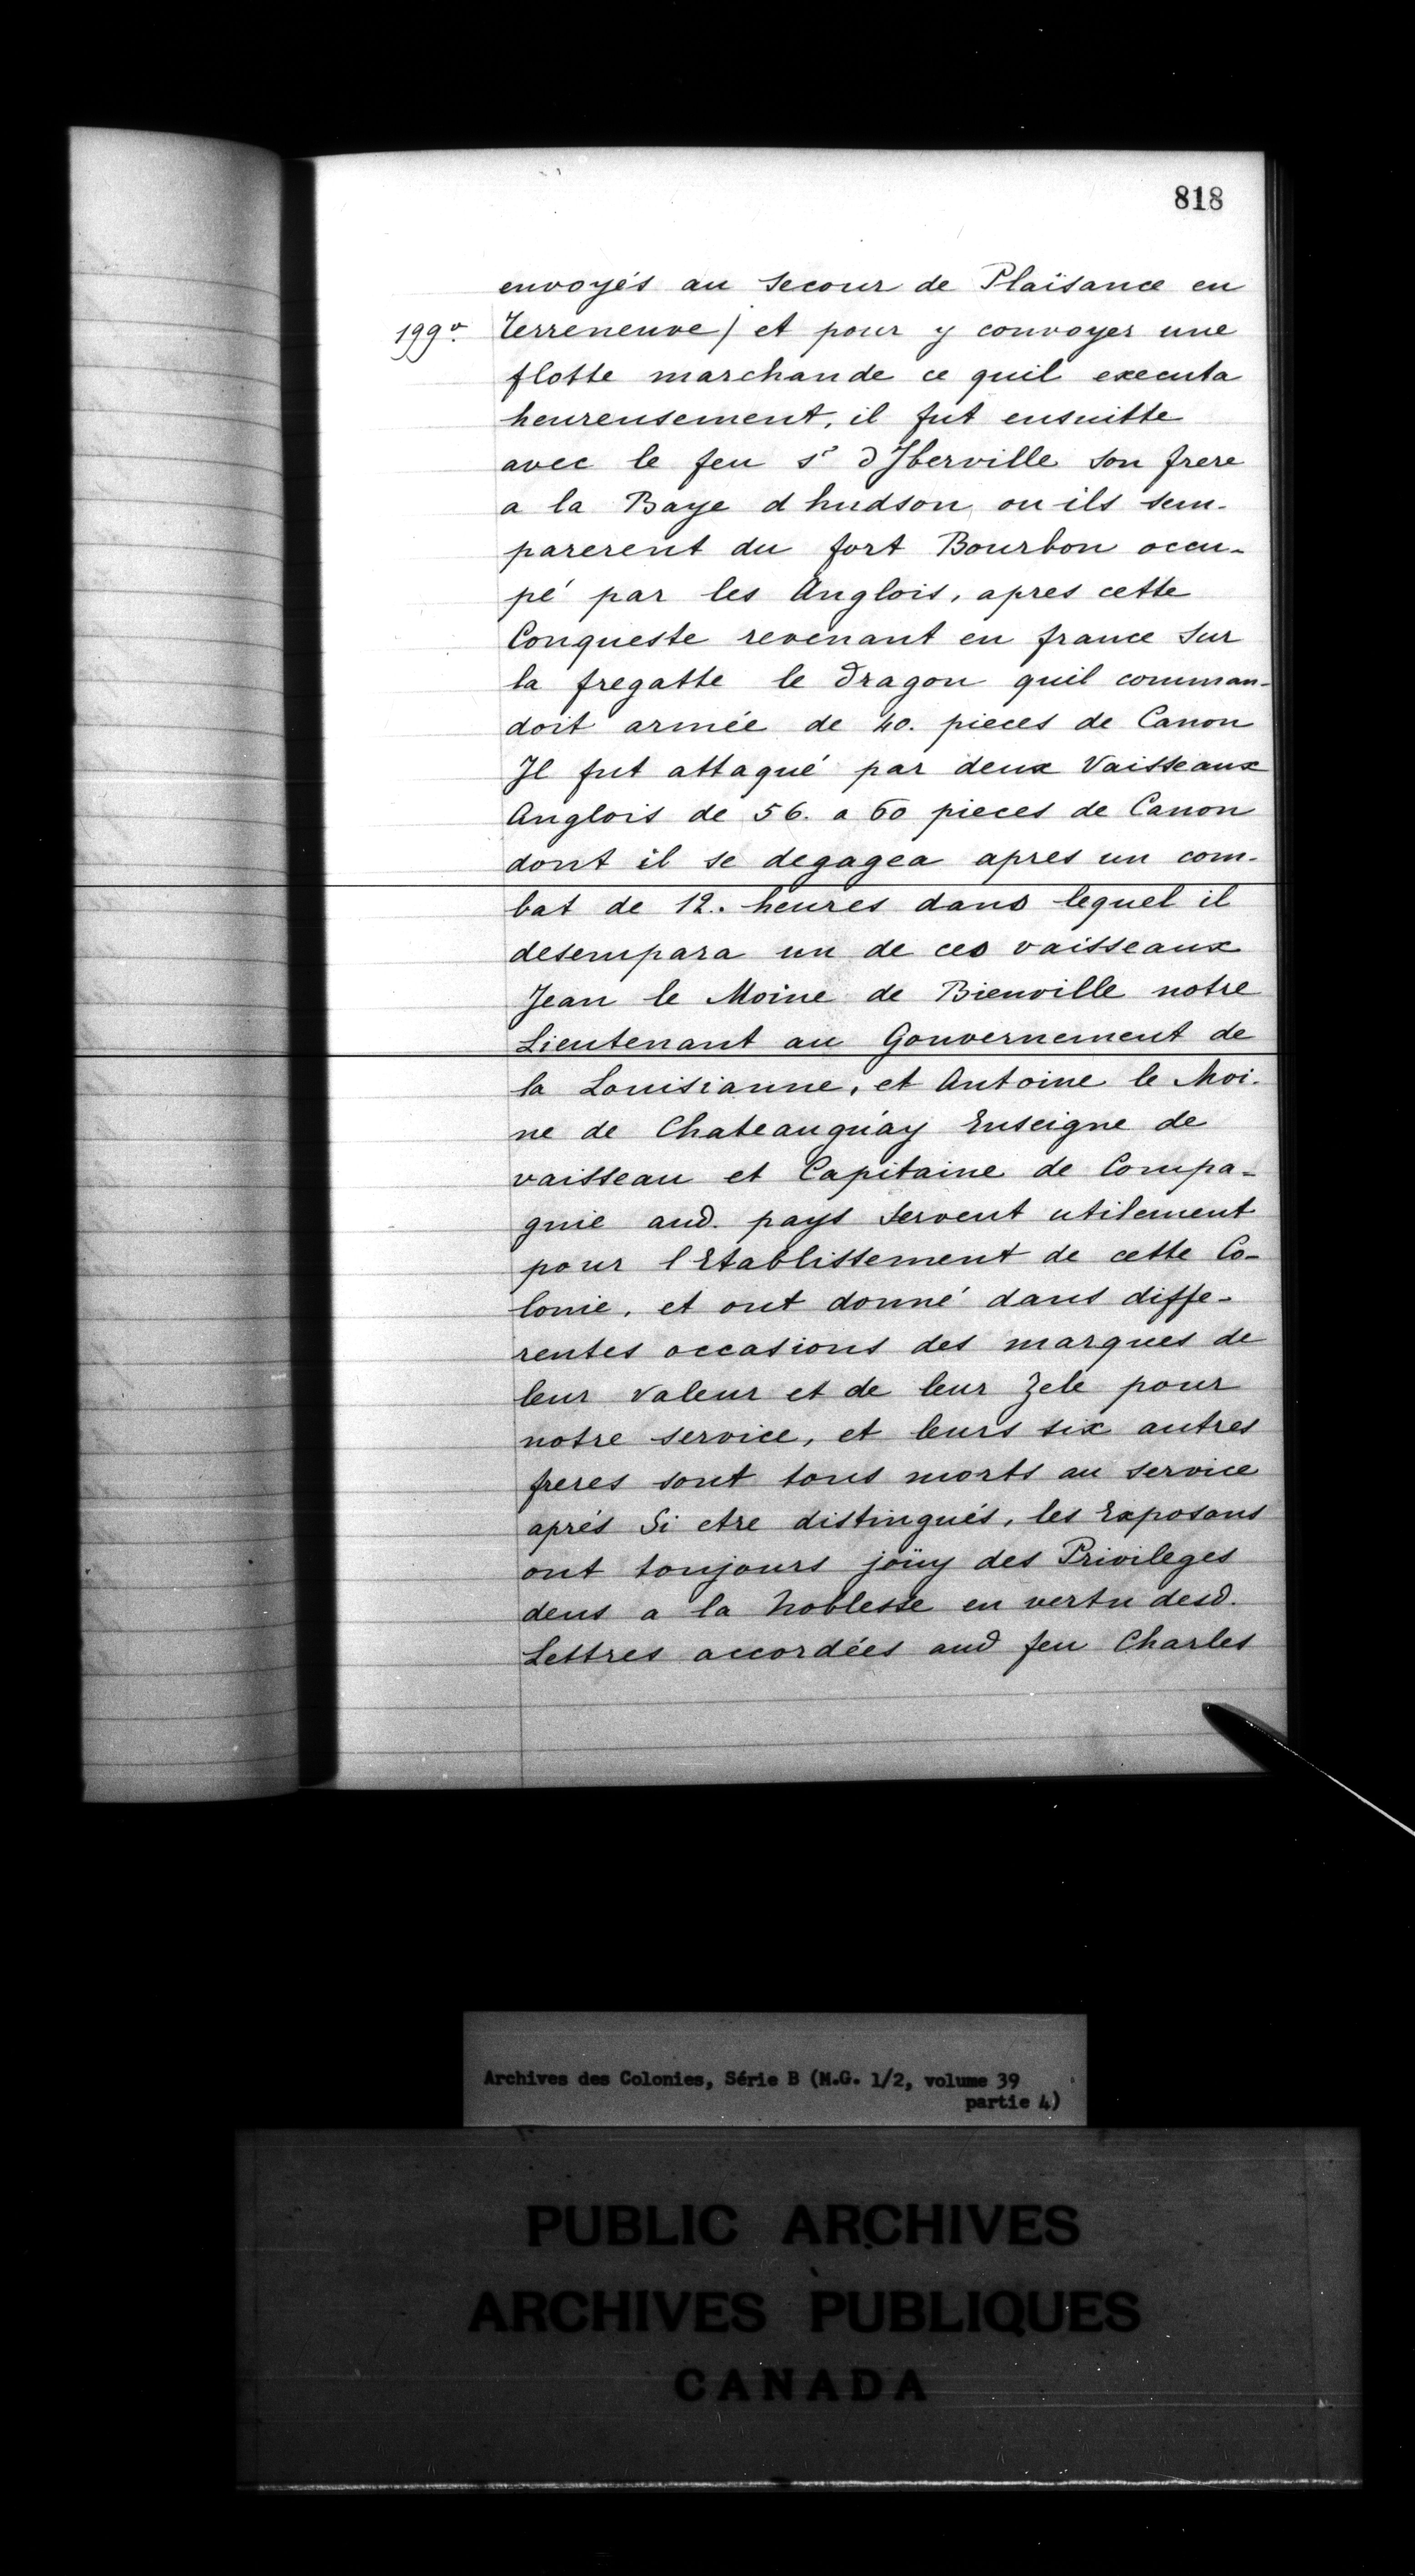 818
envoyés au secour de Plaïsance en
199v. Terreneuve / et pour y convoyer une
flotte marchande ce quil executa
heureusement, il fut ensuitte
avec le feu sr dJberville son frere
a la Baye d hudson ou ils sem-
parerent du fort Bourbon occu-
pé par les Anglois, apres cette
Conqueste revenant en france sur
la fregatte le dragon quil comman-
doit armée de 40. pieces de Canon
Jl fut attaqué par deux Vaisseaux
Anglois de 56. a 60 pieces de Canon
dont il se degagea apres un com-
bat de 12. heures dans lequel il
desempara un de ces vaisseaux
Jean le Moine de Bienville notre
Lieutenant au Gouvernement de
la Louisianne, et Antoine le Moi-
ne de Chateauguay Enseigne de
vaisseau et Capitaine de Compa-
gnie aud. pays servent utilement
pour l Etablissement de cette Co-
lonie, et ont donné dans diffe-
rentes occasions des marques de
leur valeur et de leur Zele pour
notre service, et leurs six autres
freres sont tous morts au service
aprés Si etre distingués, les Exposans
ont toujours joüy des Privileges
deus a la Noblesse en vertu desd.
Lettres accordées aud feu Charles
Archives des Colonies, Série B (M.G. 1/2, volume 39
partie 4)
PUBLIC ARCHIVES
ARCHIVES PUBLIQUES
CANADA